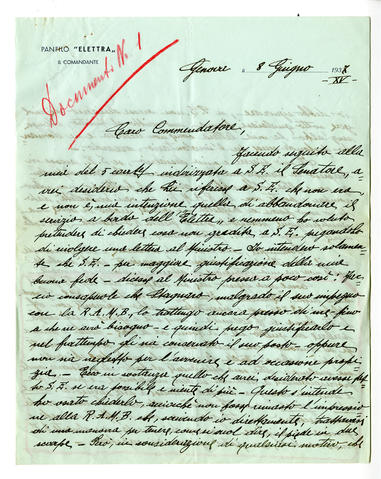 PANFILO "ELETTRA"
IL COMANDANTE
Documento N. 1
Genova 8 Giugno 193
XV
Caro Commendatore,
Facendo seguito alla
mia del 5 corr. indirizzata a S.E. il Senatore, a-
vrei desiderio che Lei riferisse a S.E. che non era
e non è, mia intenzione quella di abbandonare il
servizio a bordo dell'"Elettra" e nemmeno ho voluto
pretendere di chieder cosa non gradita a S.E. pregandolo
di rivolgere una lettera al Ministro - Io intendevo solamen-
te che S.E. - per maggiore giustificazione della mia
buona fede - dicesse al Ministro presso a poco così:
consapevole che Stagnaro, malgrado il suo impegno
con la R.A.M.B, lo trattengo ancora presso di me fino
a che ne avrò bisogno - e quindi prego giustificarlo e
nel frattempo gli sia conservato il suo posto - oppure
non sia negletto per l'avvenire - ad occasione propi-
zia - Ecco in sostanza quello che avrei desiderato
S.E. se era possibile e niente di più - Questo s'intende
ho osato chiederlo, acciocchè non fosse rimasto l'impressio-
ne alla R.A.M.B. che, servendo io direttamente,
di una manovra per tenere, così suol dirsi, il piede in due
scarpe - Però, in considerazione di qualsiasi motivo, che